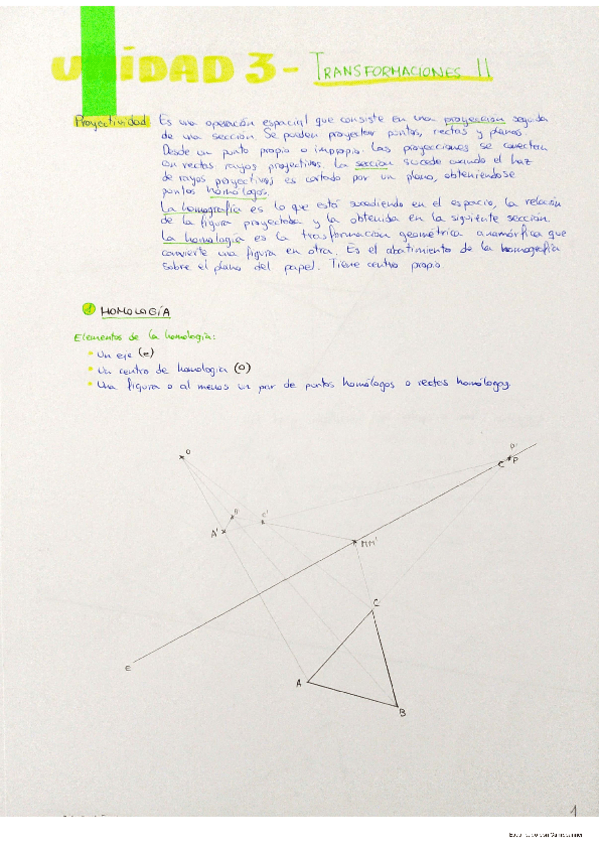 UNIDAD 3 - TRANSFORMACIONES II
Proyectividad. Es una operación espacial que consiste en una proyección seguida
de una sección. Se pueden proyectar puntos, rectas y planos.
Desde un punto propio o impropio. Las proyecciones se conectan
con rectas rayos proyectivos. La sección sucede cuando el haz
de rayos proyectivos es cortado por un plano, obteniéndose
puntos homólogos.
La homografía es lo que está sucediendo en el espacio, la relación
de la figura proyectada y la obtenida en la siguiente sección.
La homología es la trasformación geométrica anamórfica que
convierte una figura en otra. Es el abatimiento de la homografía
sobre el plano del papel. Tiene centro propio.
1 HOMOLOGÍA
Elementos de la homología:
• Un eje (e)
• Un centro de homología (O)
• Una figura o al menos un par de puntos homólogos o rectas homólogas
O
C P
A'
C'
MM'
C
e
A
B
1